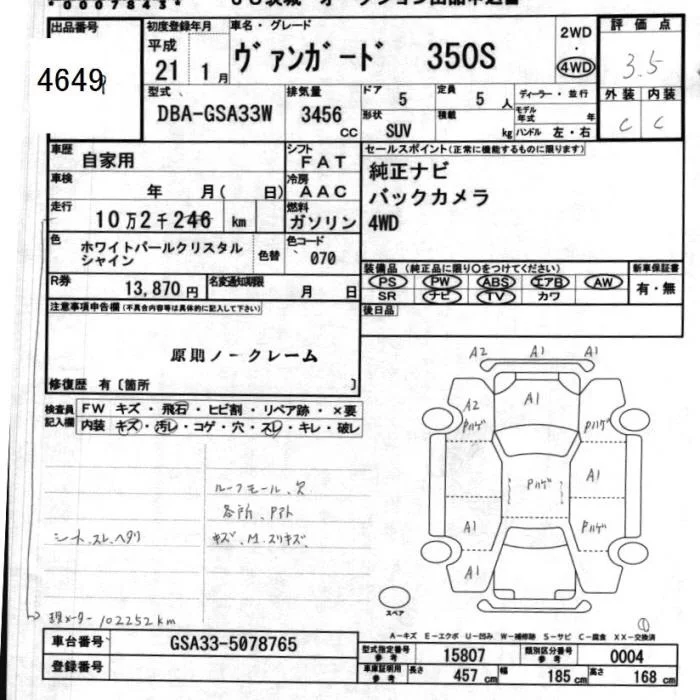 *0007843*
出品番号
4649
初度登録年月
平成
21 1月
車名・グレード
ヴァンガード 350S
2WD
・
4WD
評価点
3.5
外装 内装
C C
型式
DBA-GSA33W
排気量
3456
CC
ドア
5
定員
5 人
形状
SUV
積載
kg
ディーラー・並行
モデル年式 年
ハンドル 左・右
車歴
自家用
シフト
FAT
車検
年 月( 日)
冷房
AAC
走行
10万2千246 km
燃料
ガソリン
色
ホワイトパールクリスタル
シャイン
色替
色コード
070
R券
13,870円
名変通知期限
月 日
セールスポイント(正常に機能するものに限ります)
純正ナビ
バックカメラ
4WD
装備品(純正品に限り〇をつけてください)
PS PW ABS エアB AW
SR ナビ TV カワ
新車保証書
有・無
後日品
注意事項申告欄(不具合内容等は具体的に記入して下さい)
原則ノークレーム
修復歴 有〔箇所 〕
検査員
記入欄
FW キズ・飛石・ヒビ割・リペア跡・×要
内装 キズ・汚レ・コゲ・穴・スレ・キレ・破レ
ルーフモール、欠
各所、Pアト
シート、スレ、ヘタリ
キズ、M、スリキズ
現メーター 102252km
A2 A1 A1
A2 A1
Pハゲ Pハゲ
Pハゲ A1
A1 Pハゲ
A1
スペア
①
A－キズ E－エクボ U－凹み W－補修跡 S－サビ C－腐食 XX－交換済
車台番号
GSA33-5078765
登録番号
型式指定番号
参考
15807
類別区分番号
参考
0004
車庫証明用
参考
長さ
457 cm
幅
185 cm
高さ
168 cm